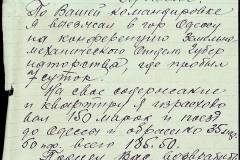 По Вашей командировке
я выезжал в гор Одессу
на конференцию
механического Отдела Губер
наторства, где пробыл
7 суток.
На свое содержание
и квартиру я израсходо
вал 150 марок и поезд
до Одессы и обратно 35
всего 185.50.
Прошу Вас